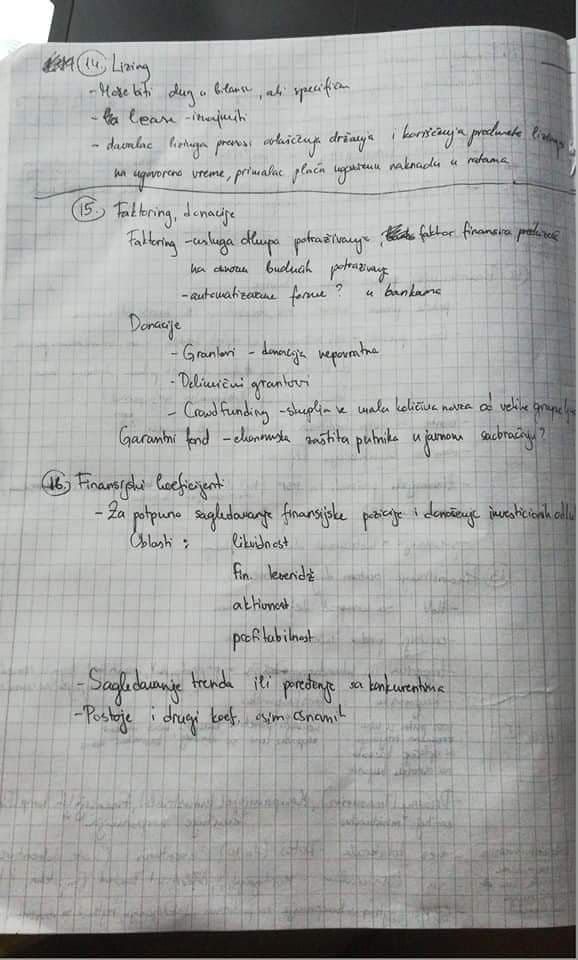 14. Lizing
- Može biti dug u bilansu, ali specifičan
- lease - iznajmiti
- davalac lizinga prenosi ovlašćenja držanja i korišćenja predmeta lizinga
na ugovoreno vreme, primalac plaća ugovorenu naknadu u ratama
15. Faktoring, donacije
Faktoring - usluga otkupa potraživanja, faktor finansira preduzeće
na osnovu budućih potraživanja
- automatizovane forme? u bankama
Donacije
- Grantovi - donacija nepovratna
- Delimični grantovi
- Crowdfunding - skuplja se mala količina novca od velike grupe
Garantni fond - ekonomska zaštita putnika u javnom saobraćaju?
16. Finansijski koeficijenti
- Za potpuno sagledavanje finansijske pozicije i donošenje investicionih odluka
Oblasti: likvidnost
fin. leveridž
aktivnost
profitabilnost
- Sagledavanje trenda ili poređenje sa konkurentima
- Postoje i drugi koef. osim osnovnih